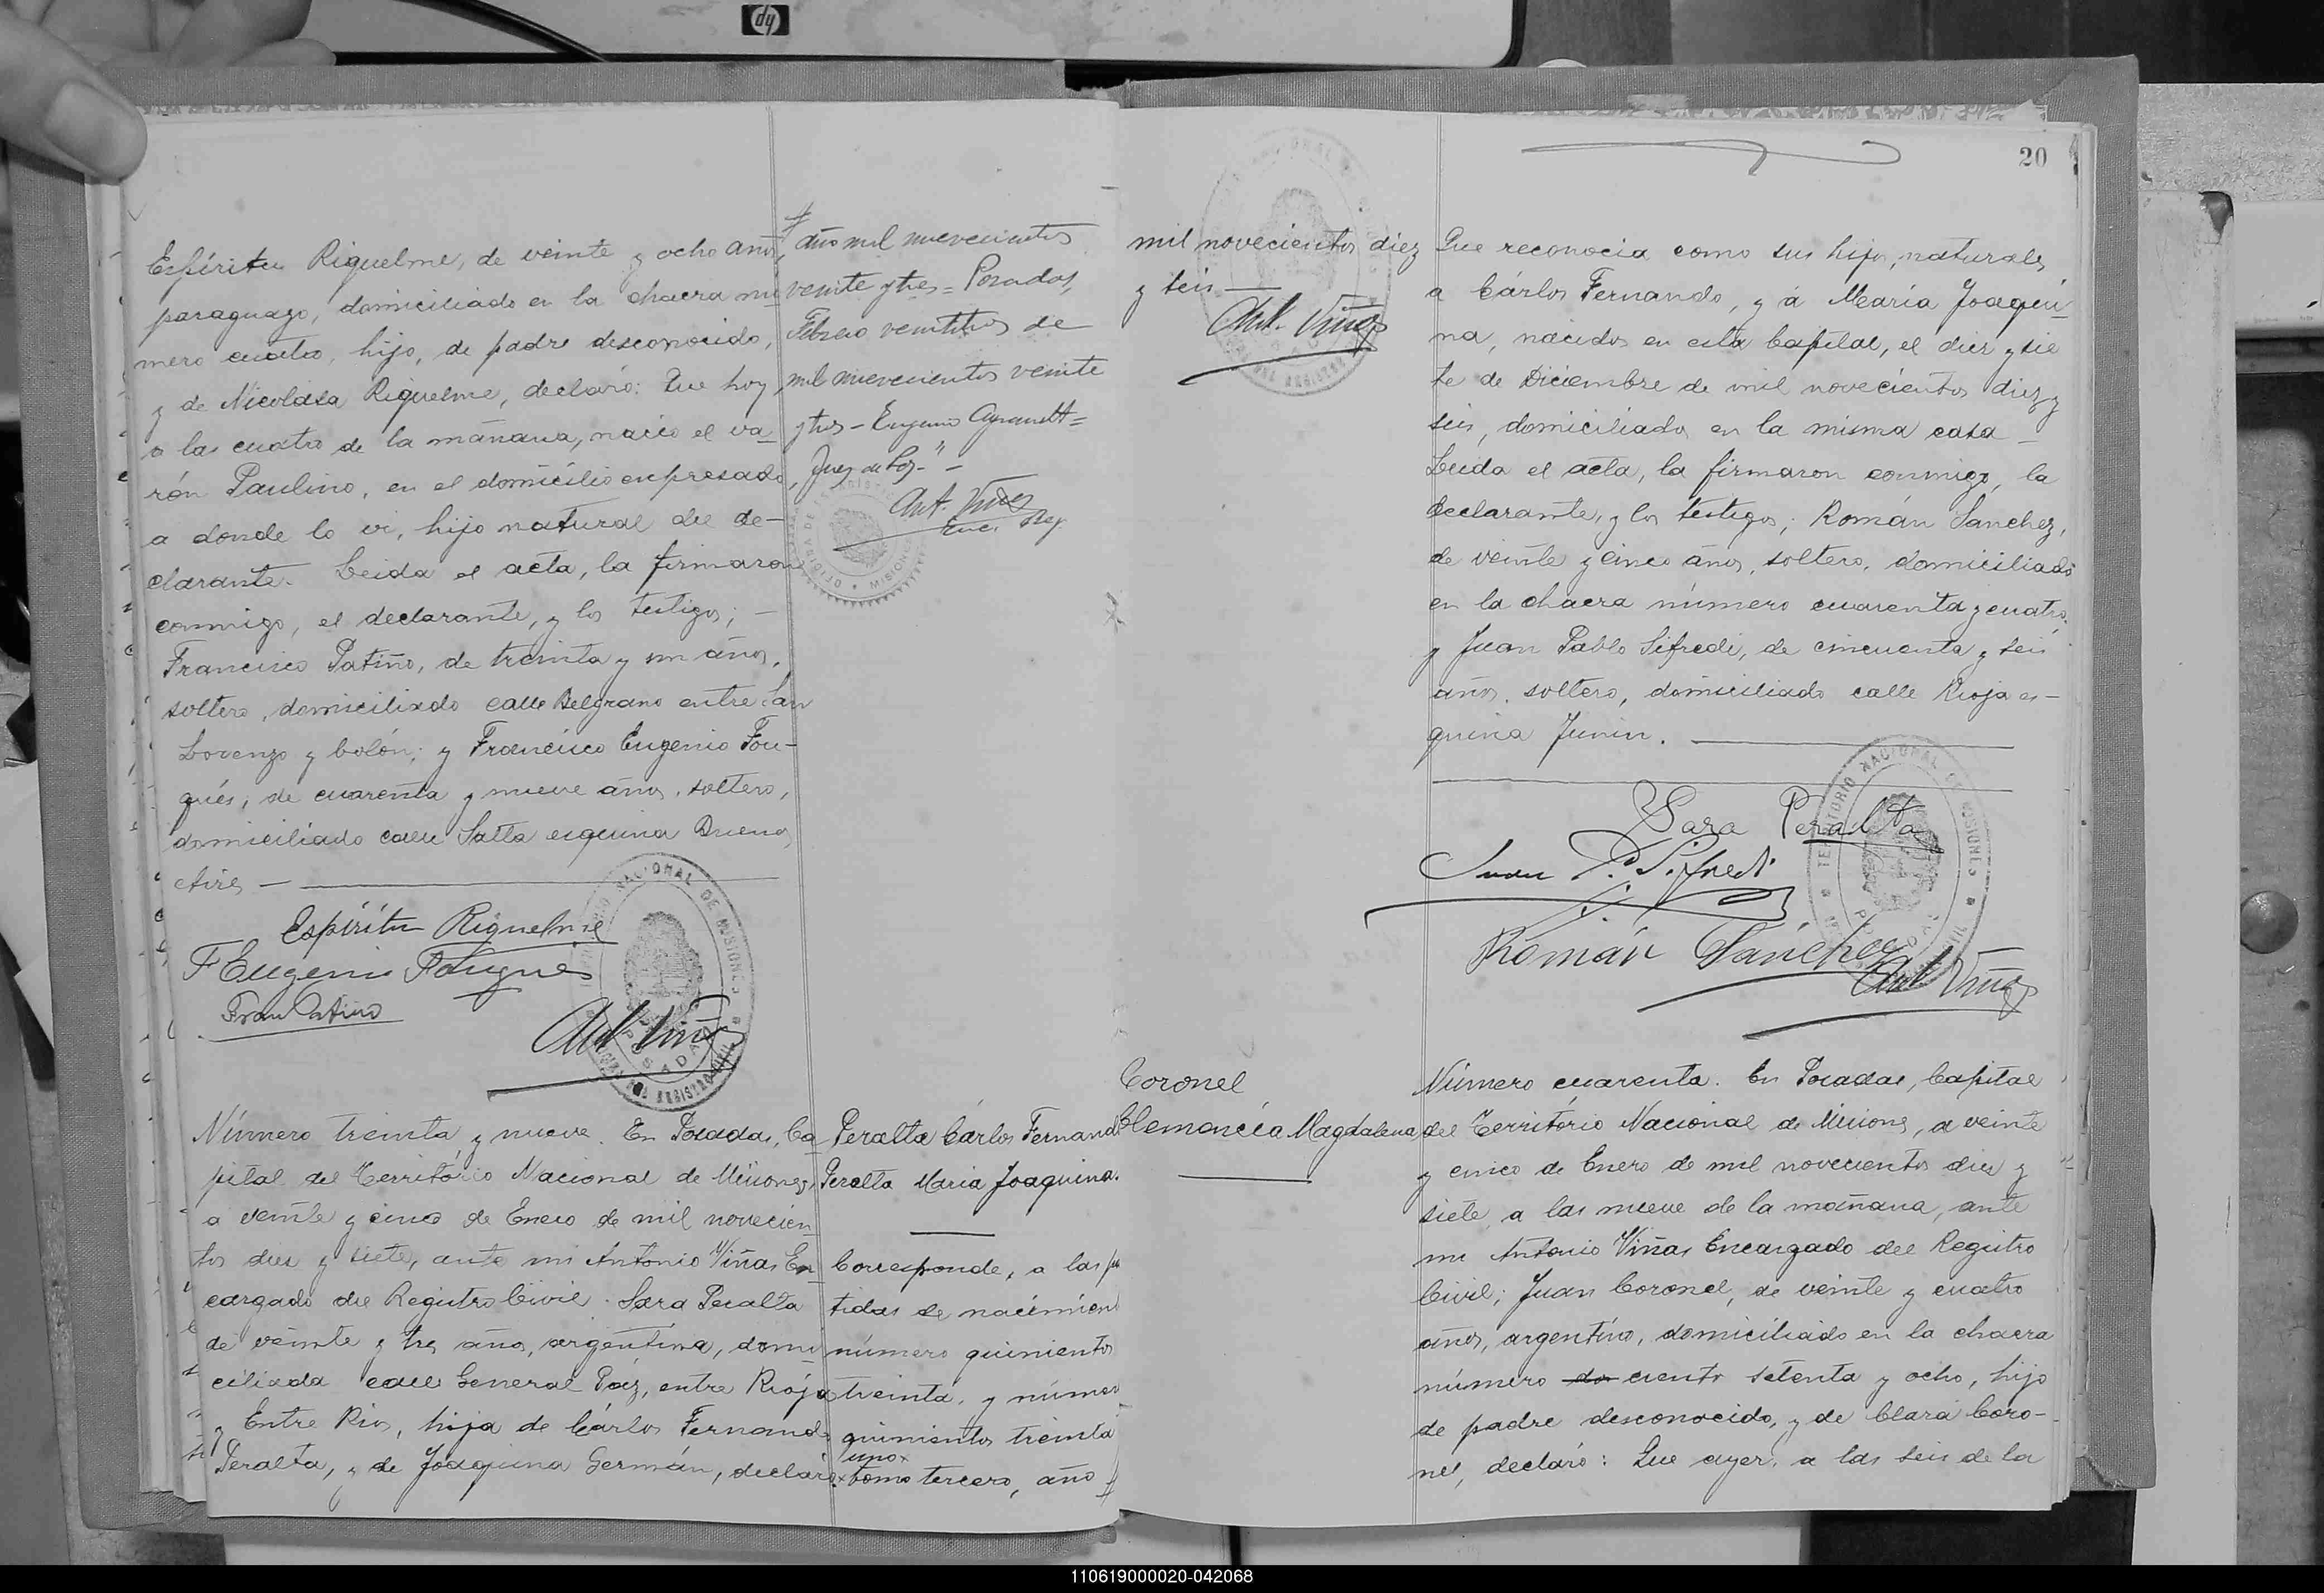 hp
Espíritu Riquelme, de veinte y ocho años,
paraguayo, domiciliado en la chacra nú
mero cuatro, hijo, de padre desconocido,
y de Nicolasa Riquelme, declaró: Que hoy
a las cuatro de la mañana, nació el va-
rón Paulino, en el domicilio expresado,
a donde lo vi, hijo natural del de-
clarante. Leida el acta, la firmaron
conmigo, el declarante, y los testigos; —
Francisco Patiño, de treinta y un años,
soltero, domiciliado calle Belgrano entre San
Lorenzo y Colón; y Francisco Eugenio Fou-
qués, de cuarenta y nueve años, soltero,
domiciliado calle Salta esquina Buenos
Aires —
Espíritu Riquelme
F Eugenio Fouques
Fran Patiño
Ant. Viñas
Número treinta y nueve. En Posadas, Ca-
pital del Território Nacional de Misiones,
a veinte y cinco de Enero de mil novecien
tos diez y siete, ante mi Antonio Viñas En-
cargado del Registro Civil. Sara Peralta
de veinte y tres años, argentina, domi-
ciliada calle General Paz, entre Rioja
y Entre Rios, hija de Cárlos Fernando
Peralta, y de Joaquina Germán, declaró:
# año mil nuevecientos
veinte y tres = Posadas,
Febrero veintitres de
mil nuevecientos veinte
y tres - Eugenio
Juez de Paz -" -
Ant. Viñas
Enc. Reg.
Peralta Cárlos Fernando
Peralta María Joaquina.
Corresponde, a las pa
tidas de nacimien
número quinientos
treinta, y número
quinientos treinta
uno x
x tomo tercero, año #
mil novecientos diez
y seis —
Ant. Viñas
20
Que reconocia como sus hijos naturales
a Cárlos Fernando, y á María Joaqui-
na, nacidos en esta Capital, el diez y sie
te de Diciembre de mil novecientos diez y
seis, domiciliados en la misma casa —
Leida el acta, la firmaron conmigo, la
declarante, y los testigos; Román Sanchez,
de veinte y cinco años, soltero, domiciliado
en la chacra número cuarenta y cuatro,
y Juan Pablo Sifredi, de cincuenta y seis
años, soltero, domiciliado calle Rioja es-
quina Junin.
Sara Peralta
Juan P. Sifredi
Román Sánchez
Ant Viñas
TERRITORIO NACIONAL DE MISIONES
Coronel
Clemencia Magdalena
Número cuarenta. En Posadas, Capital
del Território Nacional de Misiones, a veinte
y cinco de Enero de mil novecientos diez y
siete, a las nueve de la mañana, ante
mi Antonio Viñas Encargado del Registro
Civil; Juan Coronel, de veinte y cuatro
años, argentino, domiciliado en la chacra
número dos ciento setenta y ocho, hijo
de padre desconocido, y de Clara Coro-
nel, declaró: Que ayer, a las seis de la
110619000020-042068